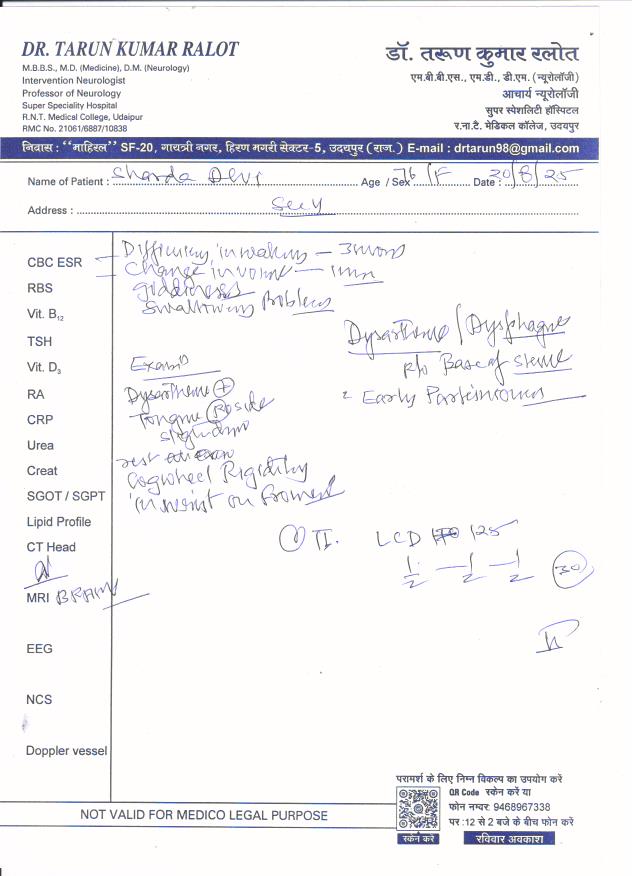 DR. TARUN KUMAR RALOT
M.B.B.S., M.D. (Medicine), D.M. (Neurology)
Intervention Neurologist
Professor of Neurology
Super Speciality Hospital
R.N.T. Medical College, Udaipur
RMC No. 21061/6887/10838
डॉ. तरूण कुमार रलोत
एम.बी.बी.एस., एम.डी., डी.एम. (न्यूरोलॉजी)
आचार्य न्यूरोलॉजी
सुपर स्पेशलिटी हॉस्पिटल
र.ना.टै. मेडिकल कॉलेज, उदयपुर
निवास : "नाहिस्ल" SF-20, गायत्री नगर, हिरण मगरी सेक्टर-5, उदयपुर (राज.) E-mail : drtarun98@gmail.com
Name of Patient : Sharda Devi Age / Sex 76/F Date : 20/8/25
Address :
CBC ESR
RBS
Vit. B12
TSH
Vit. D3
RA
CRP
Urea
Creat
SGOT / SGPT
Lipid Profile
CT Head
MRI BRAIN
EEG
NCS
Doppler vessel
Difficulty in walking
Change in
giddiness
Swallowing problem
Exam
Tongue
Cogwheel Rigidity
in wrist on froment
r/o Base of
Early Parkinsonism
T. LCD 125
1/2 — 1/2 — 1/2 30
NOT VALID FOR MEDICO LEGAL PURPOSE
परामर्श के लिए निम्न विकल्प का उपयोग करें
QR Code स्केन करें या
फोन नम्बर: 9468967338
पर :12 से 2 बजे के बीच फोन करें
स्केन करे
रविवार अवकाश